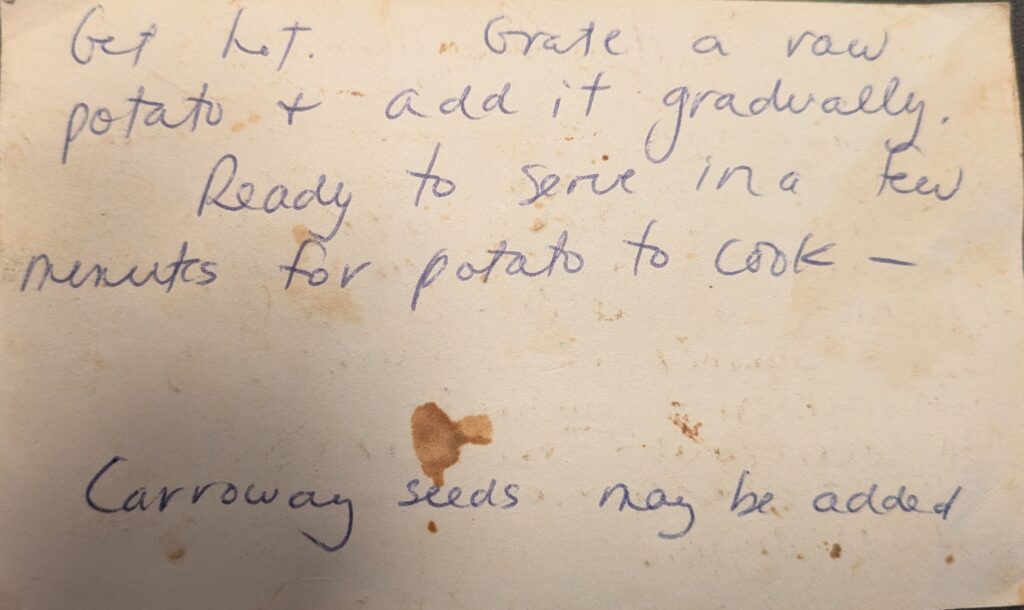 Get hot. Grate a raw
potato + add it gradually.
Ready to serve in a few
minutes for potato to cook —
Carroway seeds may be added